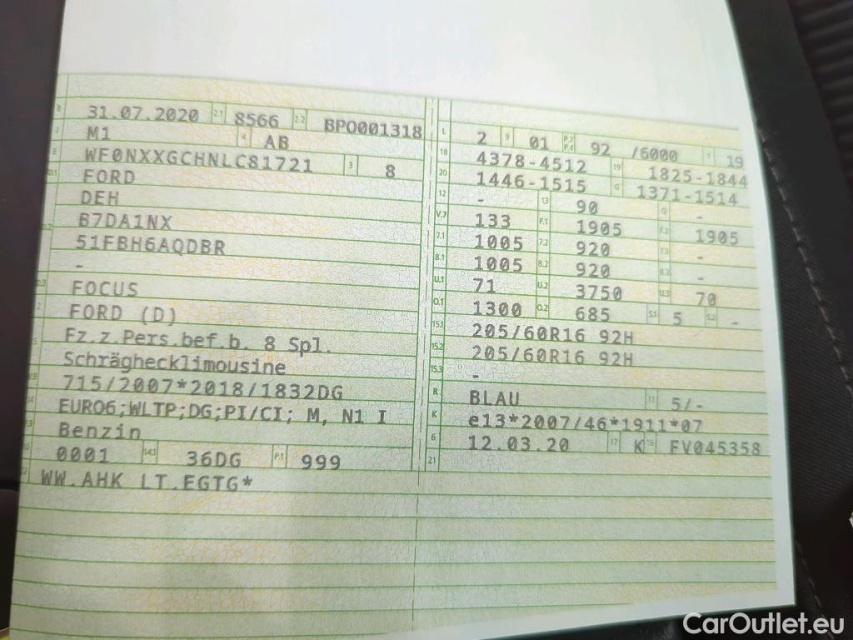 31.07.2020 2.1 8566 2.2 BPO001318
M1 AB
WF0NXXGCHNLC81721 3 8
FORD
DEH
B7DA1NX
51FBH6AQDBR
-
FOCUS
FORD (D)
Fz.z.Pers.bef.b. 8 Spl.
Schräghecklimousine
715/2007*2018/1832DG
EURO6;WLTP;DG;PI/CI; M, N1 I
Benzin
0001 14.1 36DG P.1 999
WW.AHK LT.EGTG*
L 2 9 01 P.2 P.4 92 /6000 T 19
18 4378-4512 19 1825-1844
20 1446-1515 G 1371-1514
12 - 13 90 Q -
V.7 133 F.1 1905 F.2 1905
7.1 1005 7.2 920 7.3 -
8.1 1005 8.2 920 8.3 -
U.1 71 U.2 3750 U.3 70
O.1 1300 O.2 685 S.1 5 S.2 -
15.1 205/60R16 92H
15.2 205/60R16 92H
15.3 -
R BLAU 11 5/-
K e13*2007/46*1911*07
6 12.03.20 17 K 16 FV045358
21
CarOutlet.eu